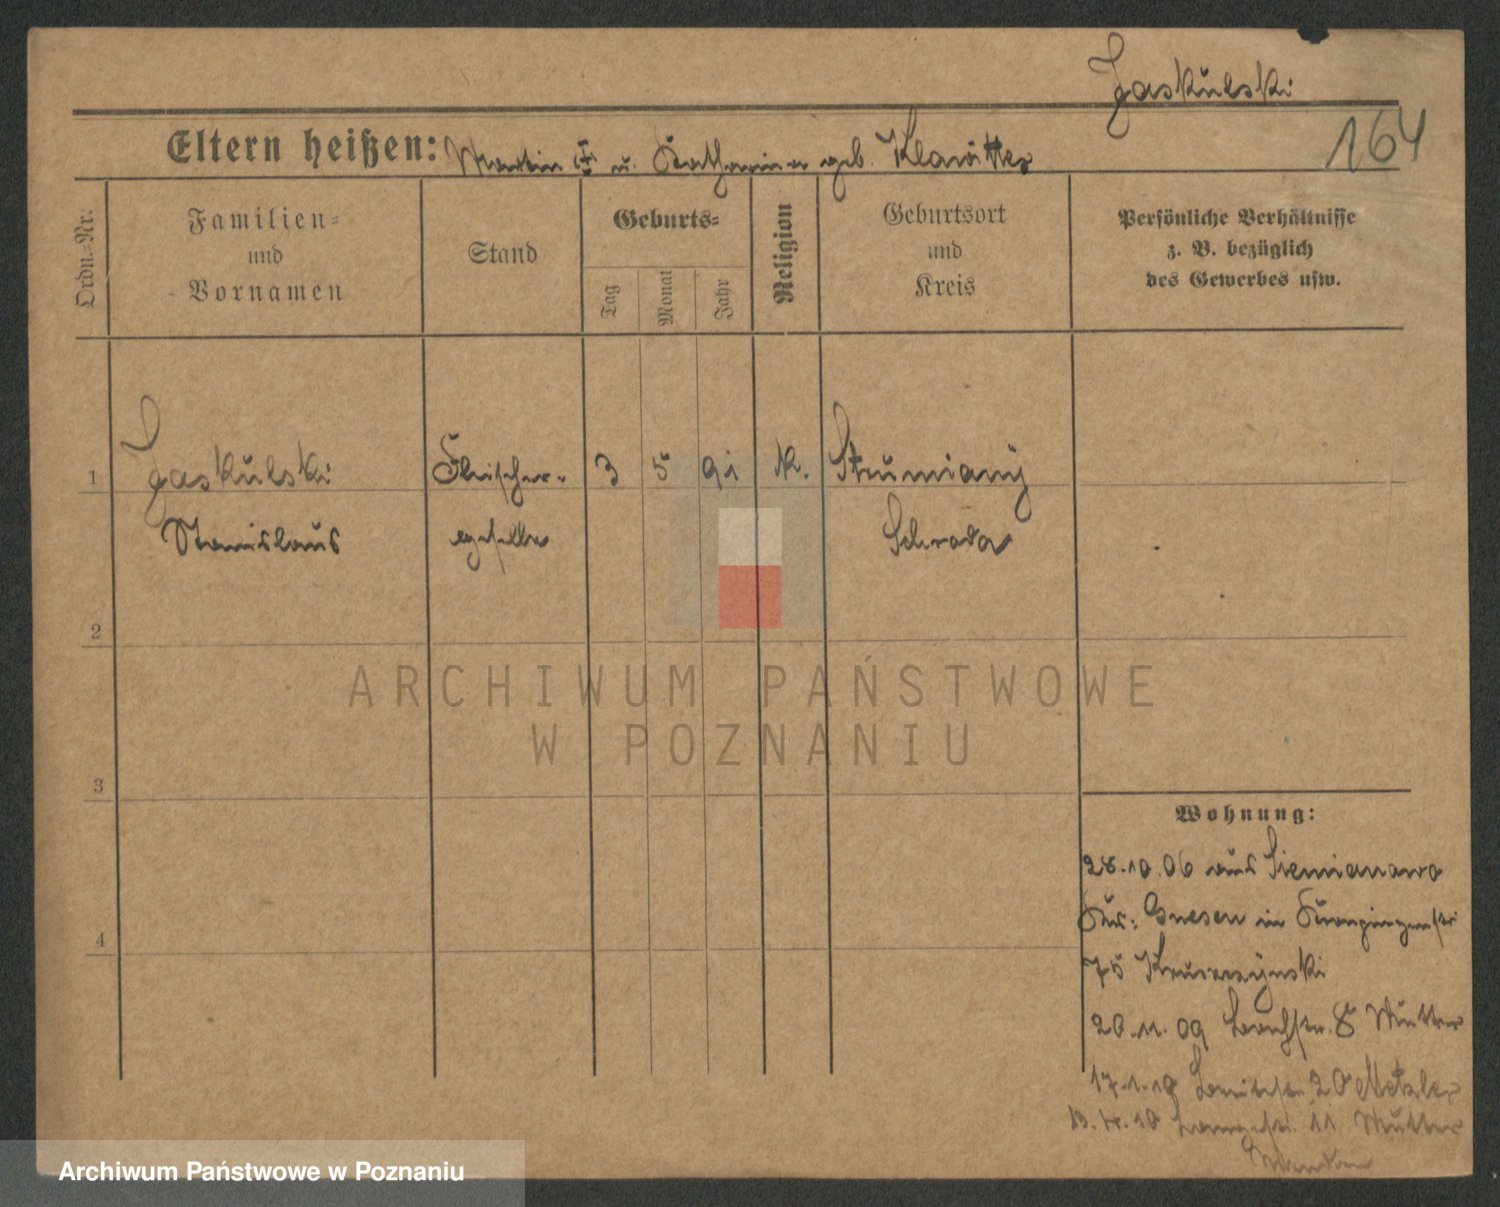 Jaskulski
164
Eltern heißen: Martin † u. Katharina geb. Klawitter
Ordn.-Nr.
Familien-
und
Vornamen
Stand
Geburts-
Tag
Monat
Jahr
Religion
Geburtsort
und
Kreis
Persönliche Verhältnisse
z. B. bezüglich
des Gewerbes usw.
1 Jaskulski Fleischer- 3 5 91 k. Strumiany
Stanislaus geselle Schroda
2
3
4
Wohnung:
28.10.06 aus Siemianowo
Krs: Gnesen in
75
20.11.09 8 Mutter
17.1.10 20 Metzler
13.4.10 Langestr. 11 Mutter
ARCHIWUM PAŃSTWOWE
W POZNANIU
Archiwum Państwowe w Poznaniu